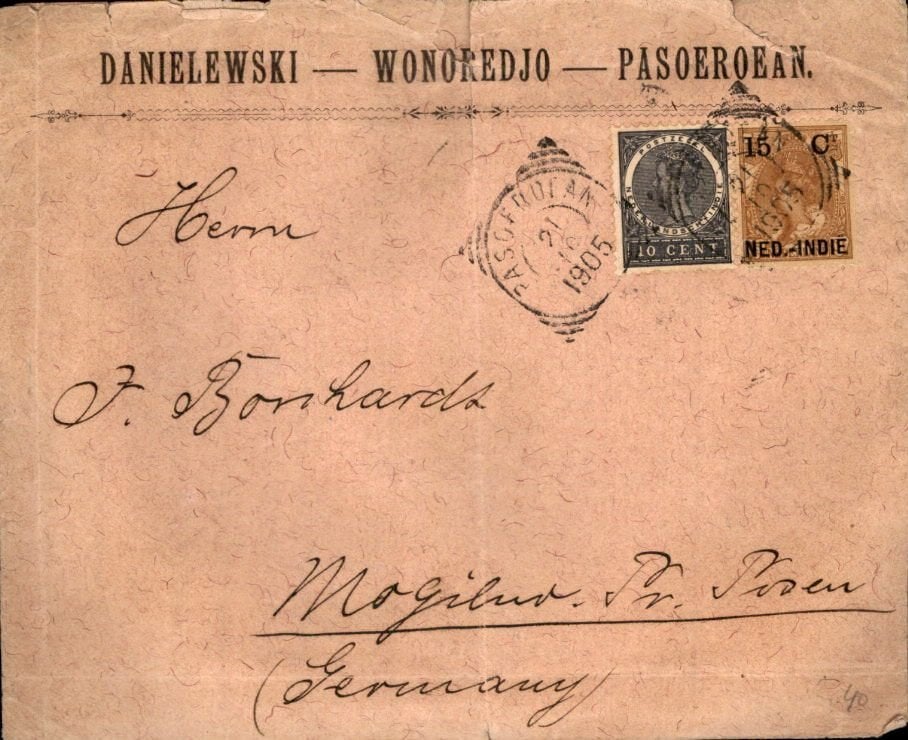 DANIELEWSKI — WONOREDJO — PASOEROEAN.
POSTZEGEL
NEDERLANDSCH-INDIE
10 CENT
15 CT
NED.-INDIE
PASOEROEAN
21
1905
21
1905
Herrn
F. Bornhardt
Mogilno. Pr. Posen
(Germany)
40